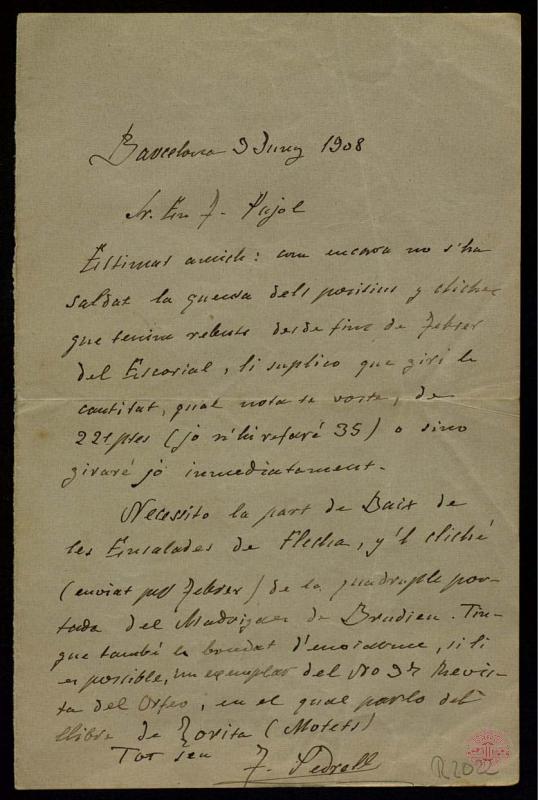 Barcelona 9 Juny 1908
Sr. En F. Pujol
Estimat amich: com encara no s'ha
saldat la guensa dels positius y clichés
que tenim rebuts desde fins de Febrer
del Escorial, li suplico que giri la
cantitat, qual nota te vosté, de
221 ptes (jo n'hi refaré 35) o sino
giraré jo inmediatament.
Necessito la part de Baix de
les Ensalades de Flecha, y'l cliché
(enviat pel Febrer) de la quadruple por-
tada del Madrigaer de Brudieu. Tin-
gue també la bondat d'enviarme, si li
es possible, un exemplar del No 9 Revis-
ta del Orfeo, en el qual parlo del
llibre de Zorita (Motets)
Tot seu F. Pedrell
R.2022